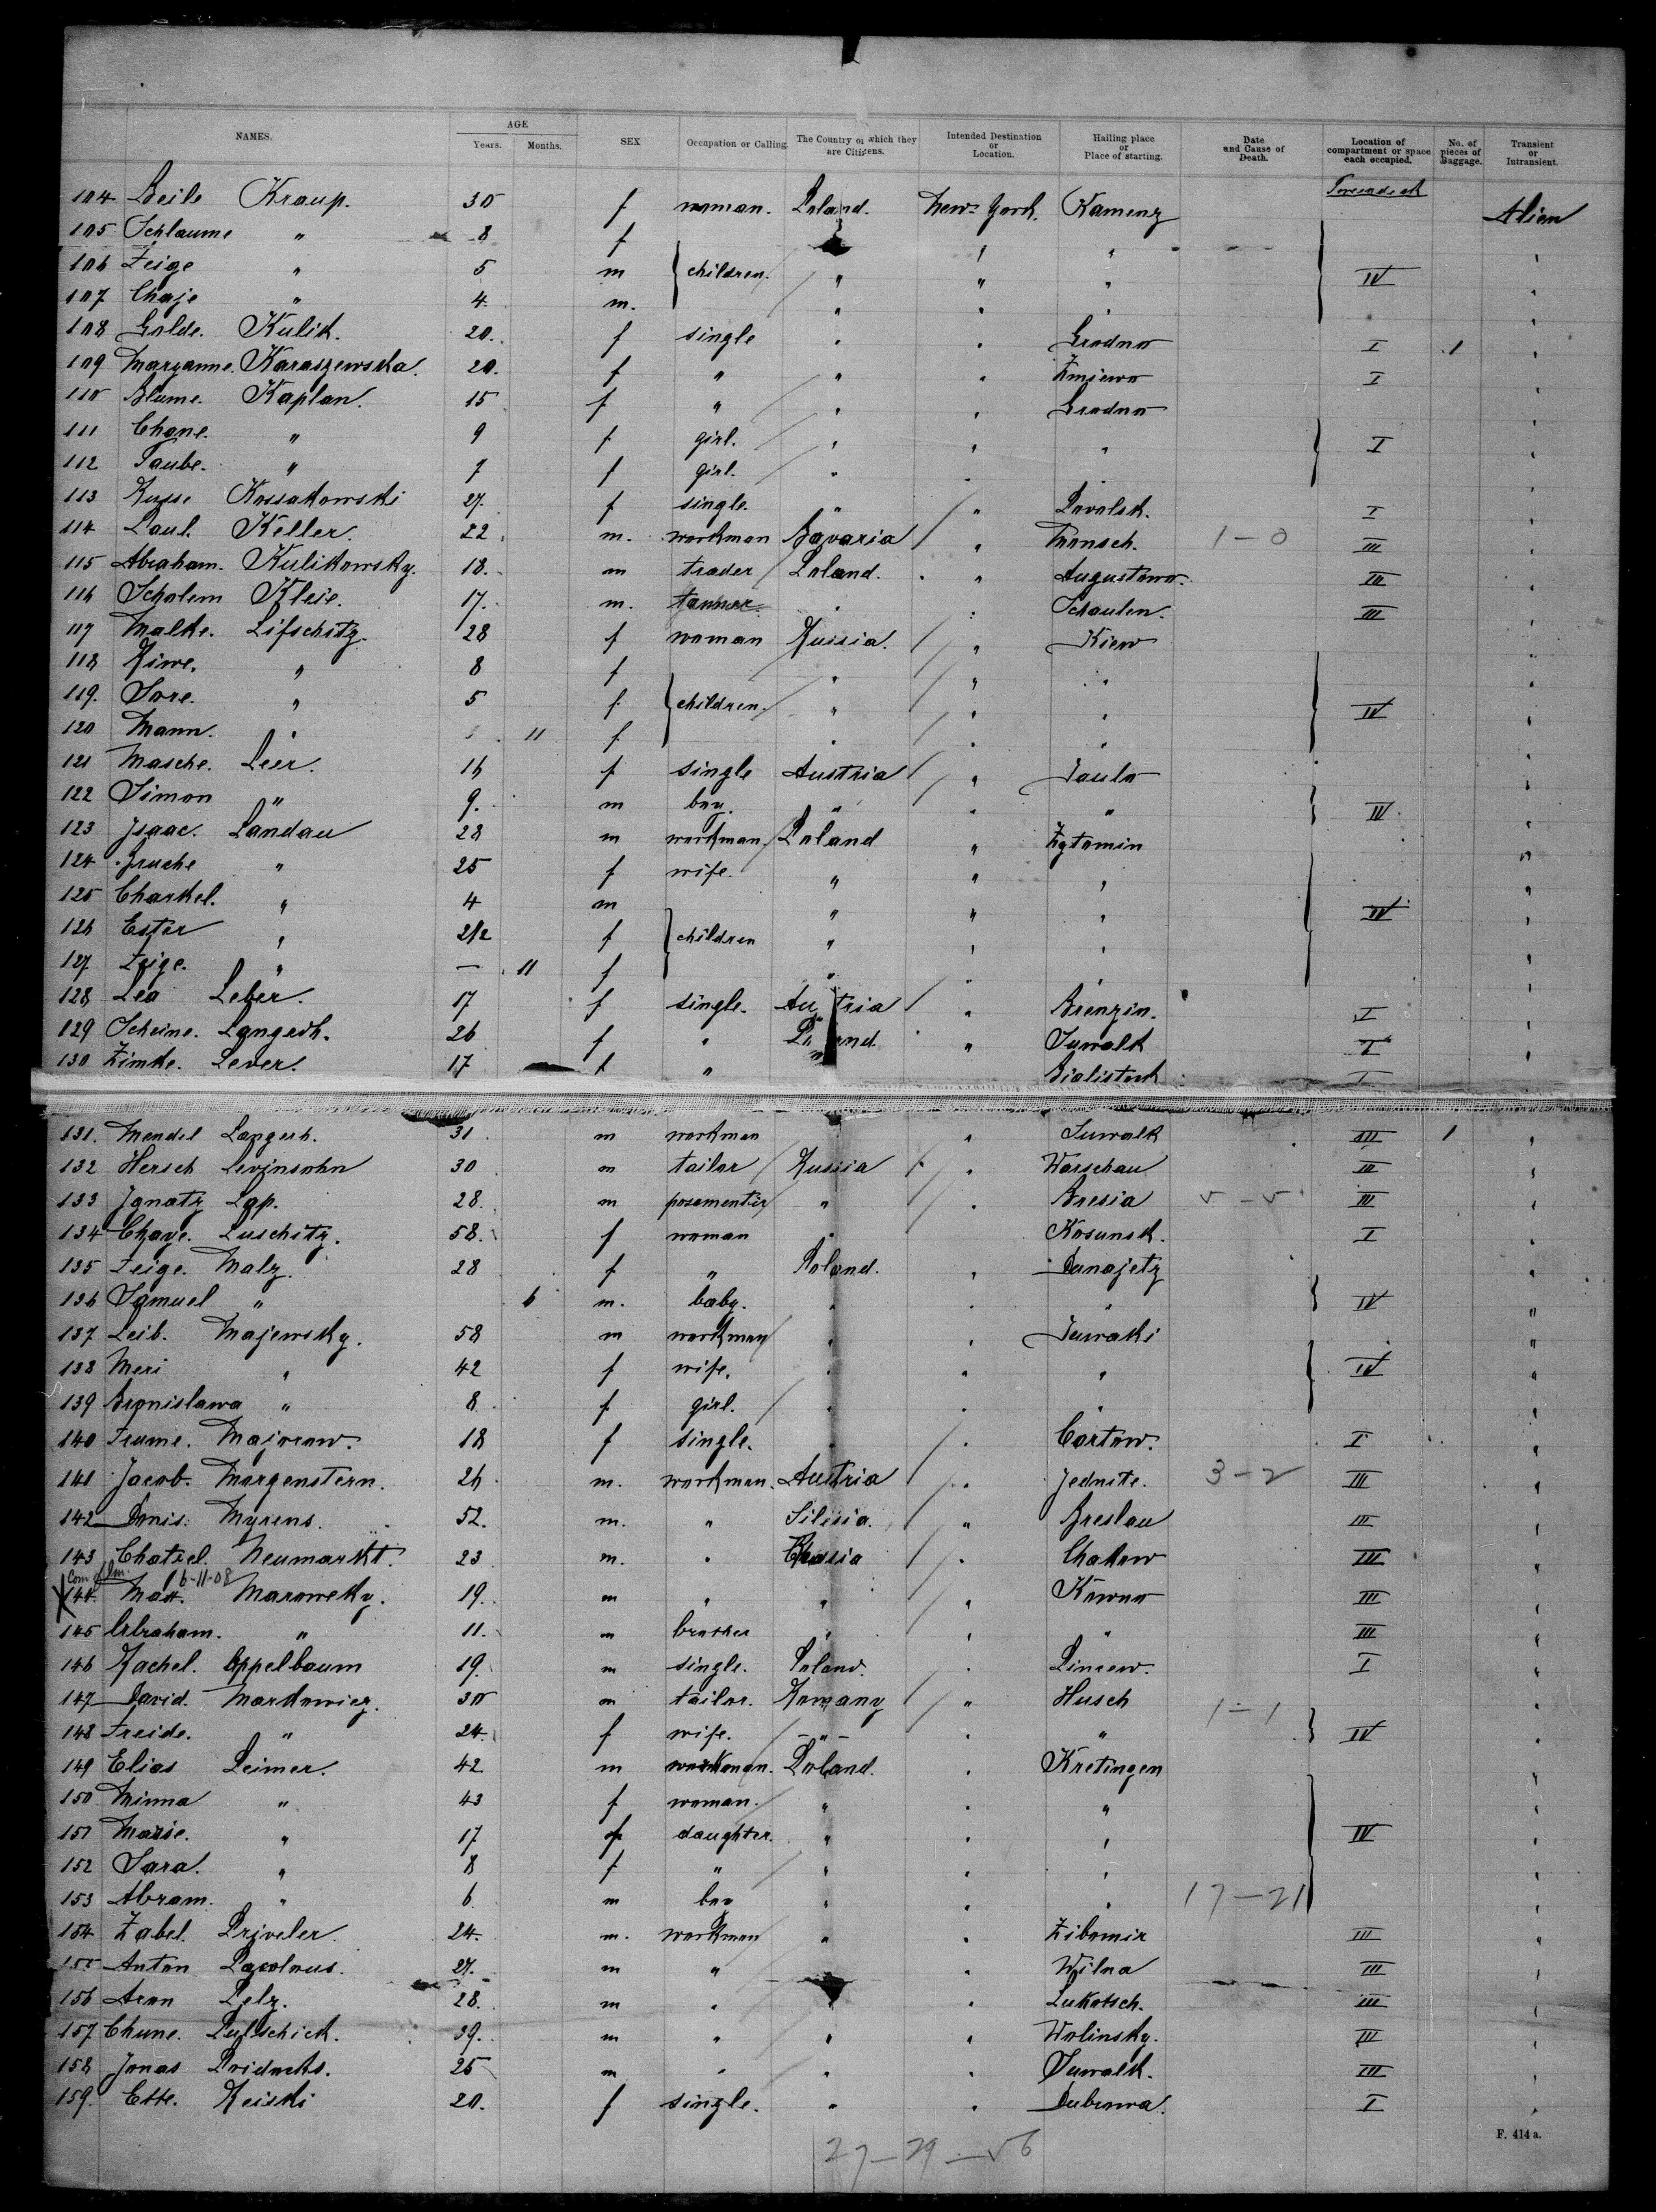 NAMES. AGE Years. Months. SEX Occupation or Calling. The Country of which they are Citizens. Intended Destination or Location. Hailing place or Place of starting. Date and Cause of Death. Location of compartment or space each occupied. No. of pieces of Baggage. Transient or Intransient.
104 Beile Kraup. 30 f woman. Poland. New-York. Kamenz Alien
105 Schlaume " 8 f " "
106 Feige " 5 m children. " " " IV "
107 Chaje " 4. m. " " " "
108 Golde. Kulik. 20. f single " " Grodno I 1 "
109 Maryanne. Karaszewska. 20. f " " " Zmiewo I "
110 Blume. Kaplan. 15 f " " " Grodno "
111 Chane. " 9 f girl. " " " I "
112 Taube. " 7 f girl. " " " "
113 Kossakowski 27. f single. " " I "
114 Paul. Keller. 22 m. workman Bavaria " 1-0 III "
115 Abraham. Kulikowsky. 18. m trader Poland. " Augustowo. III "
116 Scholem Kleie. 17. m. tanner. " " Schaulen. III "
117 Malke. Lifschitz. 28 f woman Russia. " Kiew "
118 Riwe. " 8 f " " " "
119. Sore. " 5 f. children. " " " IV "
120 Mann. " 11 f " " " "
121 Masche. Leer. 16 f single Austria " "
122 Simon " 9. m boy. " " " IV "
123 Isaac. Landau 28 m workman. Poland " Zytomin "
124 " 25 f wife. " " " "
125 Charkel. " 4 m " " " IV "
126 Ester " 2 1/2 f children " " " "
127 Feige. " — 11 f " " " "
128 Lea Leber. 17 f single. Austria " Brenzin. I "
129 Scheine. Langerh. 26 f " Poland. " Suwalk I "
130 Zimke. Lever. 17 f " " Bialistock I
131. Mendel Langerh. 31 m workman " " Suwalk III 1 "
132 Hersch Levinsohn 30 m tailor Russia " Warschau III "
133 Ignatz Lap. 28. m posamentir " " Bresia III "
134 Chaye. Luschitz. 58. f woman " Kosunsk. I "
135 Feige. Malz. 28 f " Poland. " Dunajetz "
136 Samuel " 6 m. baby. " " " IV "
137 Leib. Majewsky. 58 m workman " " Suwalki "
138 Meri " 42 f wife. " " " IV "
139 Bronislawa " 8. f girl. " " " "
140 18 f single. " " Cartow. I "
141 Jacob. Morgenstern. 26 m. workman. Austria " Jednite. 3-2 III "
142 Myrens. 52. m. " Silisia. " Breslau III "
143 Neumarkt. 23 m. " Russia " III "
Com Elm. 6-11-08
X 144. Max. Marowetky. 19. m " " " Kowno III "
145 Abraham. " 11. m brother " " " III "
146 Rachel. Oppelbaum 19. m single. Poland. " I "
147 David. Markowicz. 30 m tailor. Romany " Husch 1-1 "
148 Freide. " 24. f wife. " " " IV "
149 Elias Leimer. 42 m workman. Poland. " Kretingen "
150 Minna " 43 f woman. " " " "
151 Marie. " 17 f daughter. " " " IV "
152 Sara. " 8 f " " " " "
153 Abram. " 6 m boy " " " 17-21 "
154 Zabel. Priveler. 24. m. workman " " Zibomir III "
155 Anton 27. m " " " Wilna III "
156 Aron Pelz. 28. m " " " Lukotsch. III "
157 Chune. Pulschick. 39. m " " " Wolinsky. III "
158 Jonas 25 m " " " Suwalk. III "
159. Ette. Reiski 20. f single. " " Dubrowa. I "
27-29-56
F. 414 a.